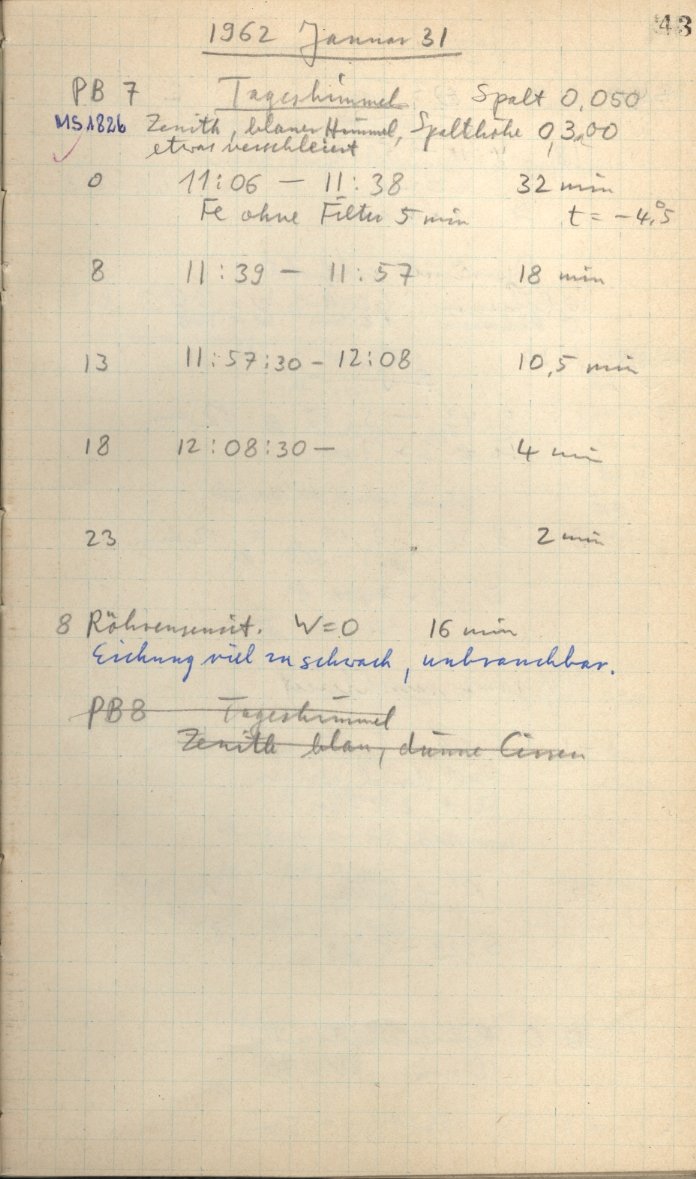 43
1962 Januar 31
PB 7 Tageshimmel Spalt 0,050
MS1826 Zenith, blauer Himmel, Spalthöhe 0,3,00
etwas verschleiert
0 11:06 — 11:38 32 min
Fe ohne Filter 5 min t = -4,°5
8 11:39 — 11:57 18 min
13 11:57:30 - 12:08 10,5 min
18 12:08:30 — 4 min
23 2 min
8 Röhrensensit. W=0 16 min
Eichung viel zu schwach, unbrauchbar.
PB8 Tageshimmel
Zenith blau, dünne Cirren